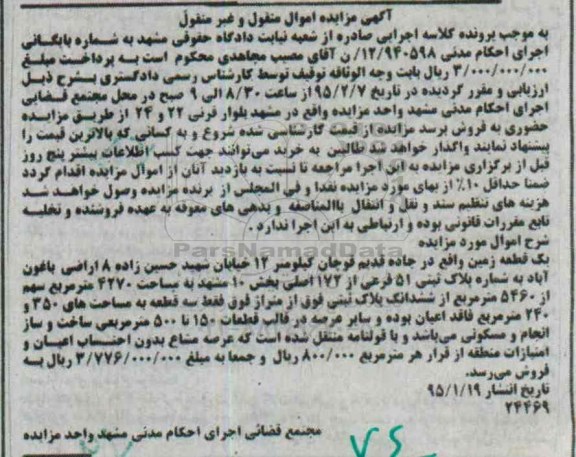 آگهی مزایده اموال منقول و غیر منقول
به موجب پرونده کلاسه اجرایی صادره از شعبه نیابت دادگاه حقوقی مشهد به شماره بایگانی
اجرای احکام مدنی ۱۲/۹۴۰۵۹۸/ن آقای مصیب مجاهدی محکوم است به پرداخت مبلغ
۳/۰۰۰/۰۰۰/۰۰۰ ریال بابت وجه الوثاقه توقیف توسط کارشناس رسمی دادگستری بشرح ذیل
ارزیابی و مقرر گردیده در تاریخ ۹۵/۲/۷ از ساعت ۸/۳۰ الی ۹ صبح در محل مجتمع قضایی
اجرای احکام مدنی مشهد واحد مزایده واقع در مشهد بلوار قرنی ۲۲ و ۲۴ از طریق مزایده
حضوری به فروش برسد مزایده از قیمت کارشناسی شده شروع و به کسانی که بالاترین قیمت را
پیشنهاد نمایند واگذار خواهد شد طالبین به خرید می‌توانند جهت کسب اطلاعات بیشتر پنج روز
قبل از برگزاری مزایده به این اجرا مراجعه تا نسبت به بازدید آنان از اموال مزایده اقدام گردد
ضمنا حداقل ۱۰٪ از بهای مورد مزایده نقدا و فی المجلس از برنده مزایده وصول خواهد شد
هزینه های تنظیم سند و نقل و انتقال باالمناصفه و بدهی های معوقه به عهده فروشنده و تخلیه
تابع مقررات قانونی بوده و ارتباطی به این اجرا ندارد.
شرح اموال مورد مزایده
یک قطعه زمین واقع در جاده قدیم قوچان کیلومتر ۱۲ خیابان شهید حسین زاده ۸ اراضی باغون
آباد به شماره پلاک ثبتی ۵۱ فرعی از ۱۷۳ اصلی بخش ۱۰ مشهد به مساحت ۴۲۷۰ مترمربع سهم
از ۵۴۶۰ مترمربع از ششدانگ پلاک ثبتی فوق از متراژ فوق فقط سه قطعه به مساحت های ۳۵۰ و
۲۴۰ مترمربع فاقد اعیان بوده و سایر عرصه در قالب قطعات ۱۵۰ تا ۵۰۰ مترمربعی ساخت و ساز
انجام و مسکونی می‌باشد و با قولنامه منتقل شده است که عرصه مشاع بدون احتساب اعیان و
امتیازات منطقه از قرار هر مترمربع ۸۰۰/۰۰۰ ریال و جمعا به مبلغ ۳/۷۷۶/۰۰۰/۰۰۰ ریال به
فروش می‌رسد.
تاریخ انتشار ۹۵/۱/۱۹
۲۴۴۶۹
مجتمع قضائی اجرای احکام مدنی مشهد واحد مزایده
ParsNamadData